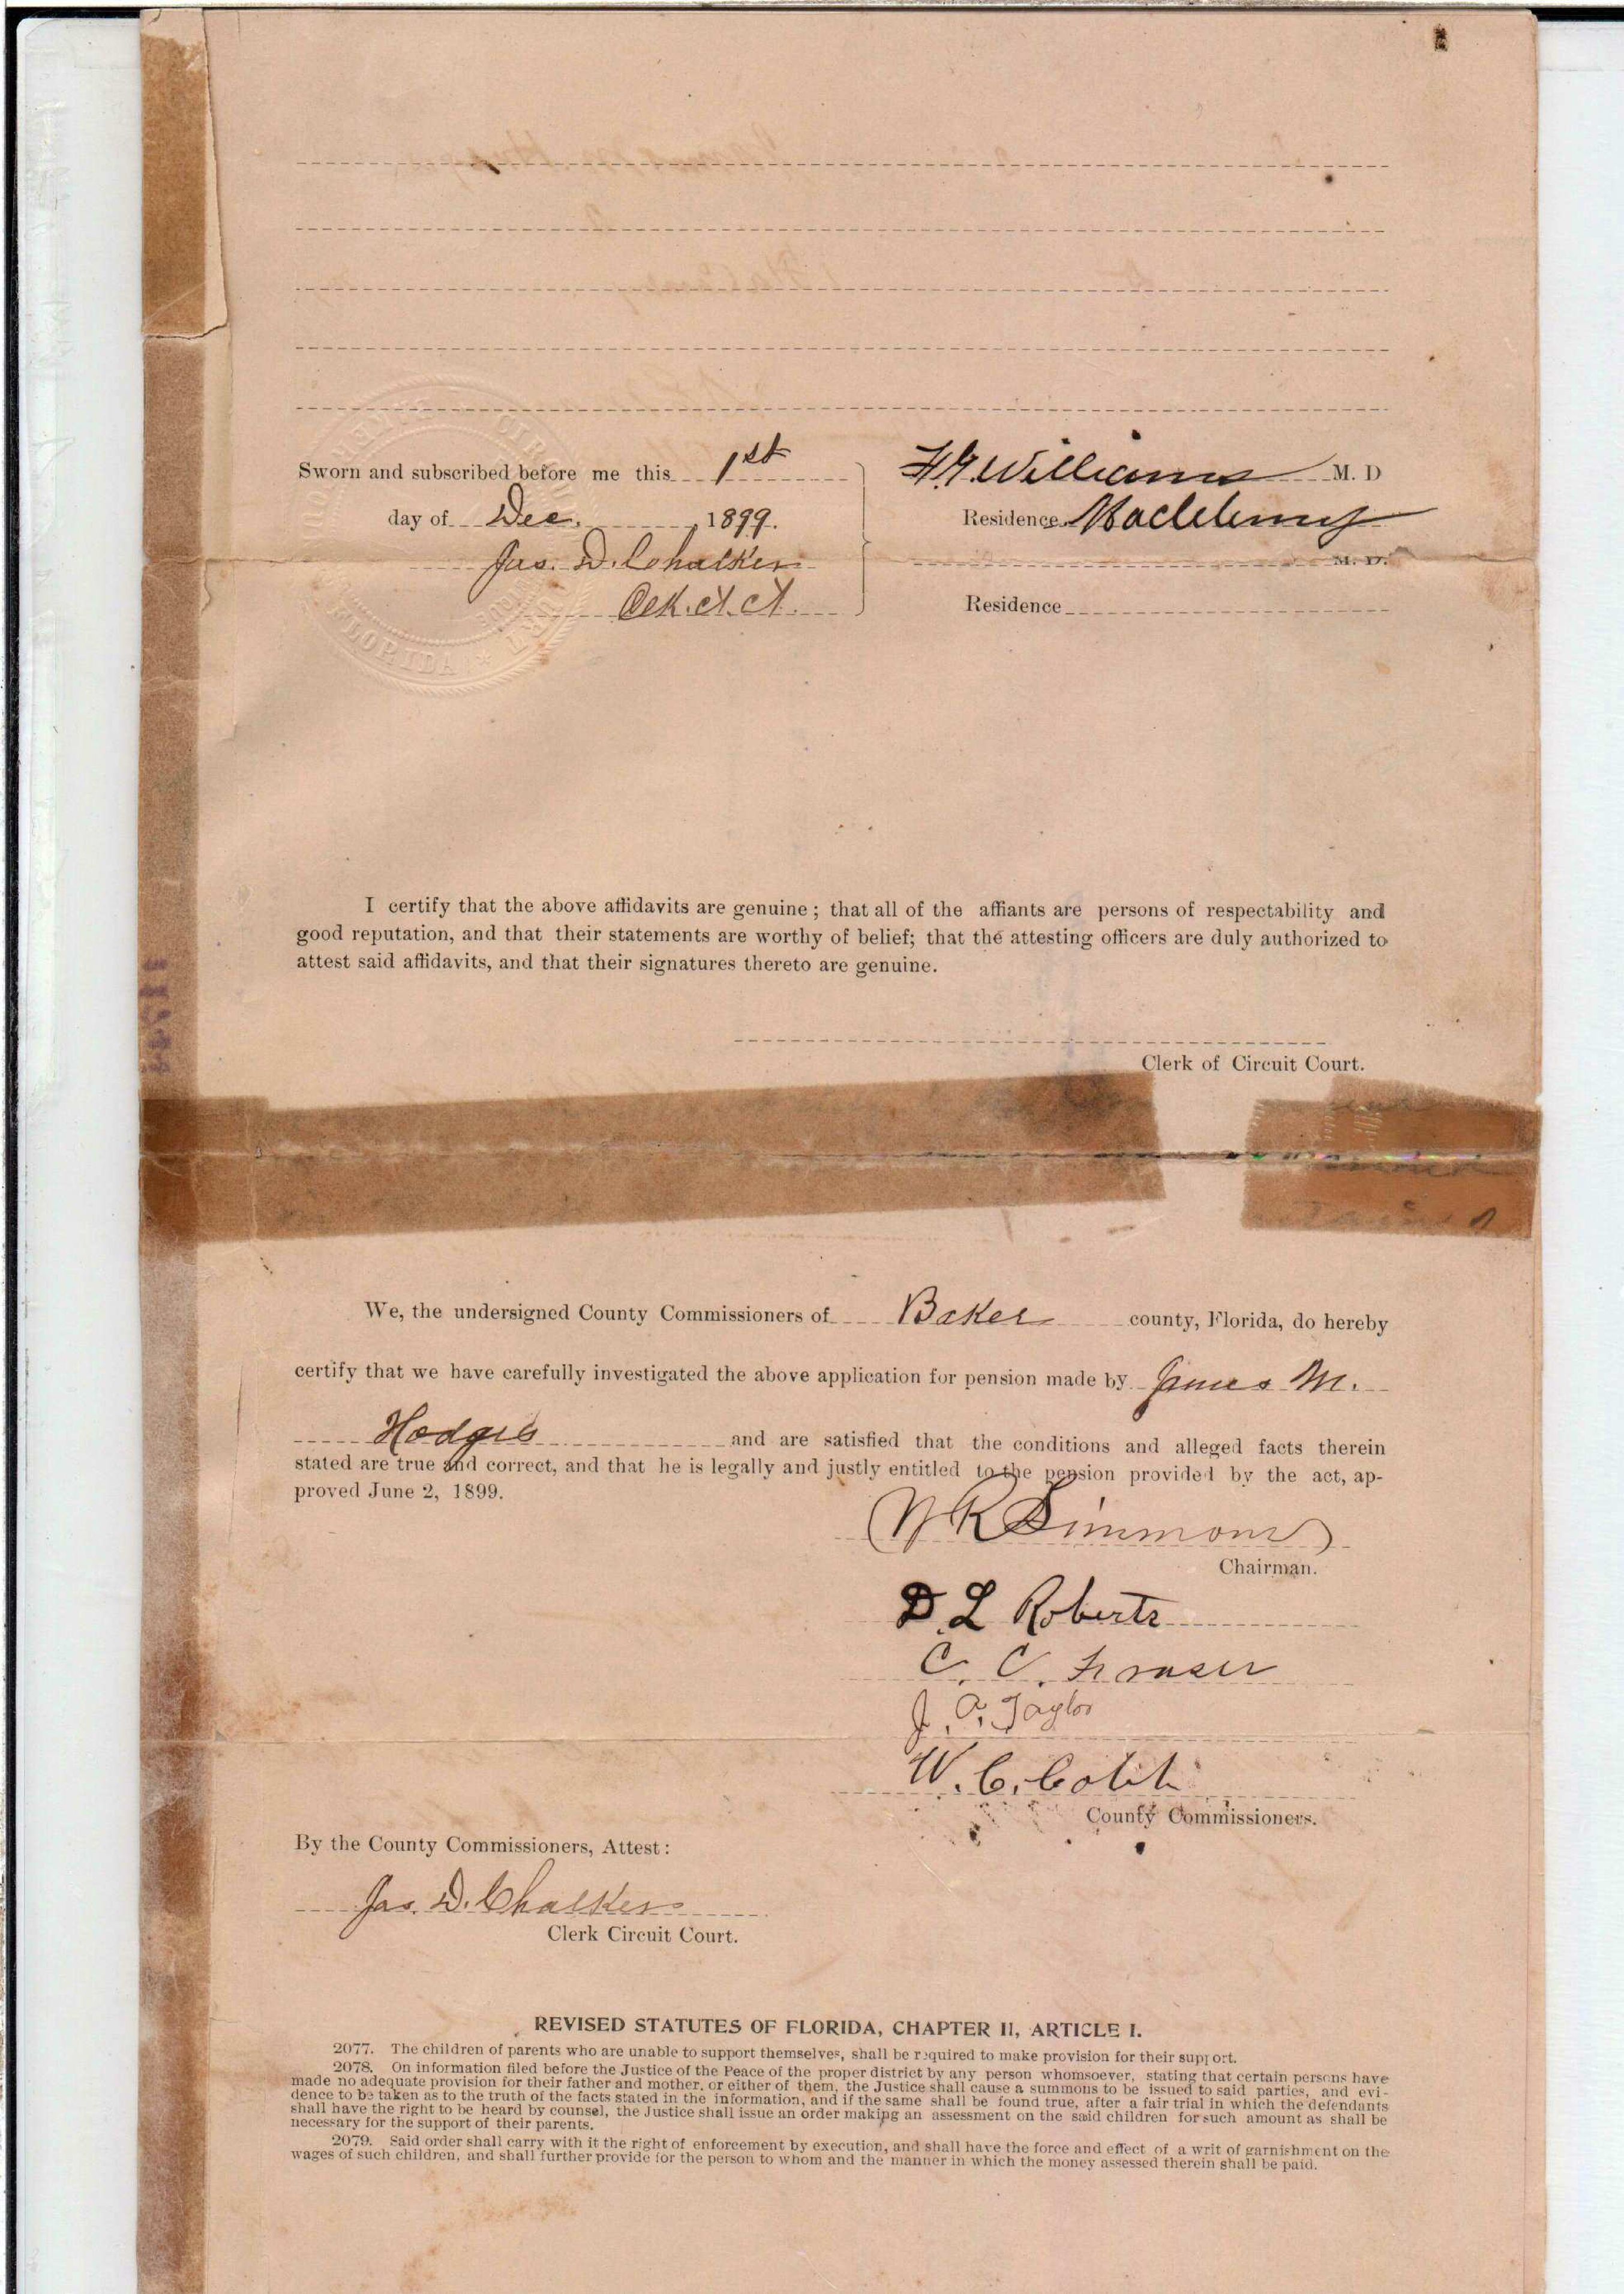 Sworn and subscribed before me this 1st
day of Dec. , 1899.
Jas. D. Chalker
Clk. Ct. Ct.
F. G. Williams M. D
Residence Macclenny
M. D.
Residence
I certify that the above affidavits are genuine ; that all of the affiants are persons of respectability and
good reputation, and that their statements are worthy of belief; that the attesting officers are duly authorized to
attest said affidavits, and that their signatures thereto are genuine.
Clerk of Circuit Court.
We, the undersigned County Commissioners of Baker county, Florida, do hereby
certify that we have carefully investigated the above application for pension made by James M.
Hodges and are satisfied that the conditions and alleged facts therein
stated are true and correct, and that he is legally and justly entitled to the pension provided by the act, ap-
proved June 2, 1899.
N R Simmons
Chairman.
D. L Roberts
C. C. Fraser
J. A. Taylor
W. C. Cobb
County Commissioners.
By the County Commissioners, Attest :
Jas. D. Chalker
Clerk Circuit Court.
REVISED STATUTES OF FLORIDA, CHAPTER II, ARTICLE I.
2077. The children of parents who are unable to support themselves, shall be required to make provision for their support.
2078. On information filed before the Justice of the Peace of the proper district by any person whomsoever, stating that certain persons have
made no adequate provision for their father and mother, or either of them, the Justice shall cause a summons to be issued to said parties, and evi-
dence to be taken as to the truth of the facts stated in the information, and if the same shall be found true, after a fair trial in which the defendants
shall have the right to be heard by counsel, the Justice shall issue an order making an assessment on the said children for such amount as shall be
necessary for the support of their parents.
2079. Said order shall carry with it the right of enforcement by execution, and shall have the force and effect of a writ of garnishment on the
wages of such children, and shall further provide for the person to whom and the manner in which the money assessed therein shall be paid.